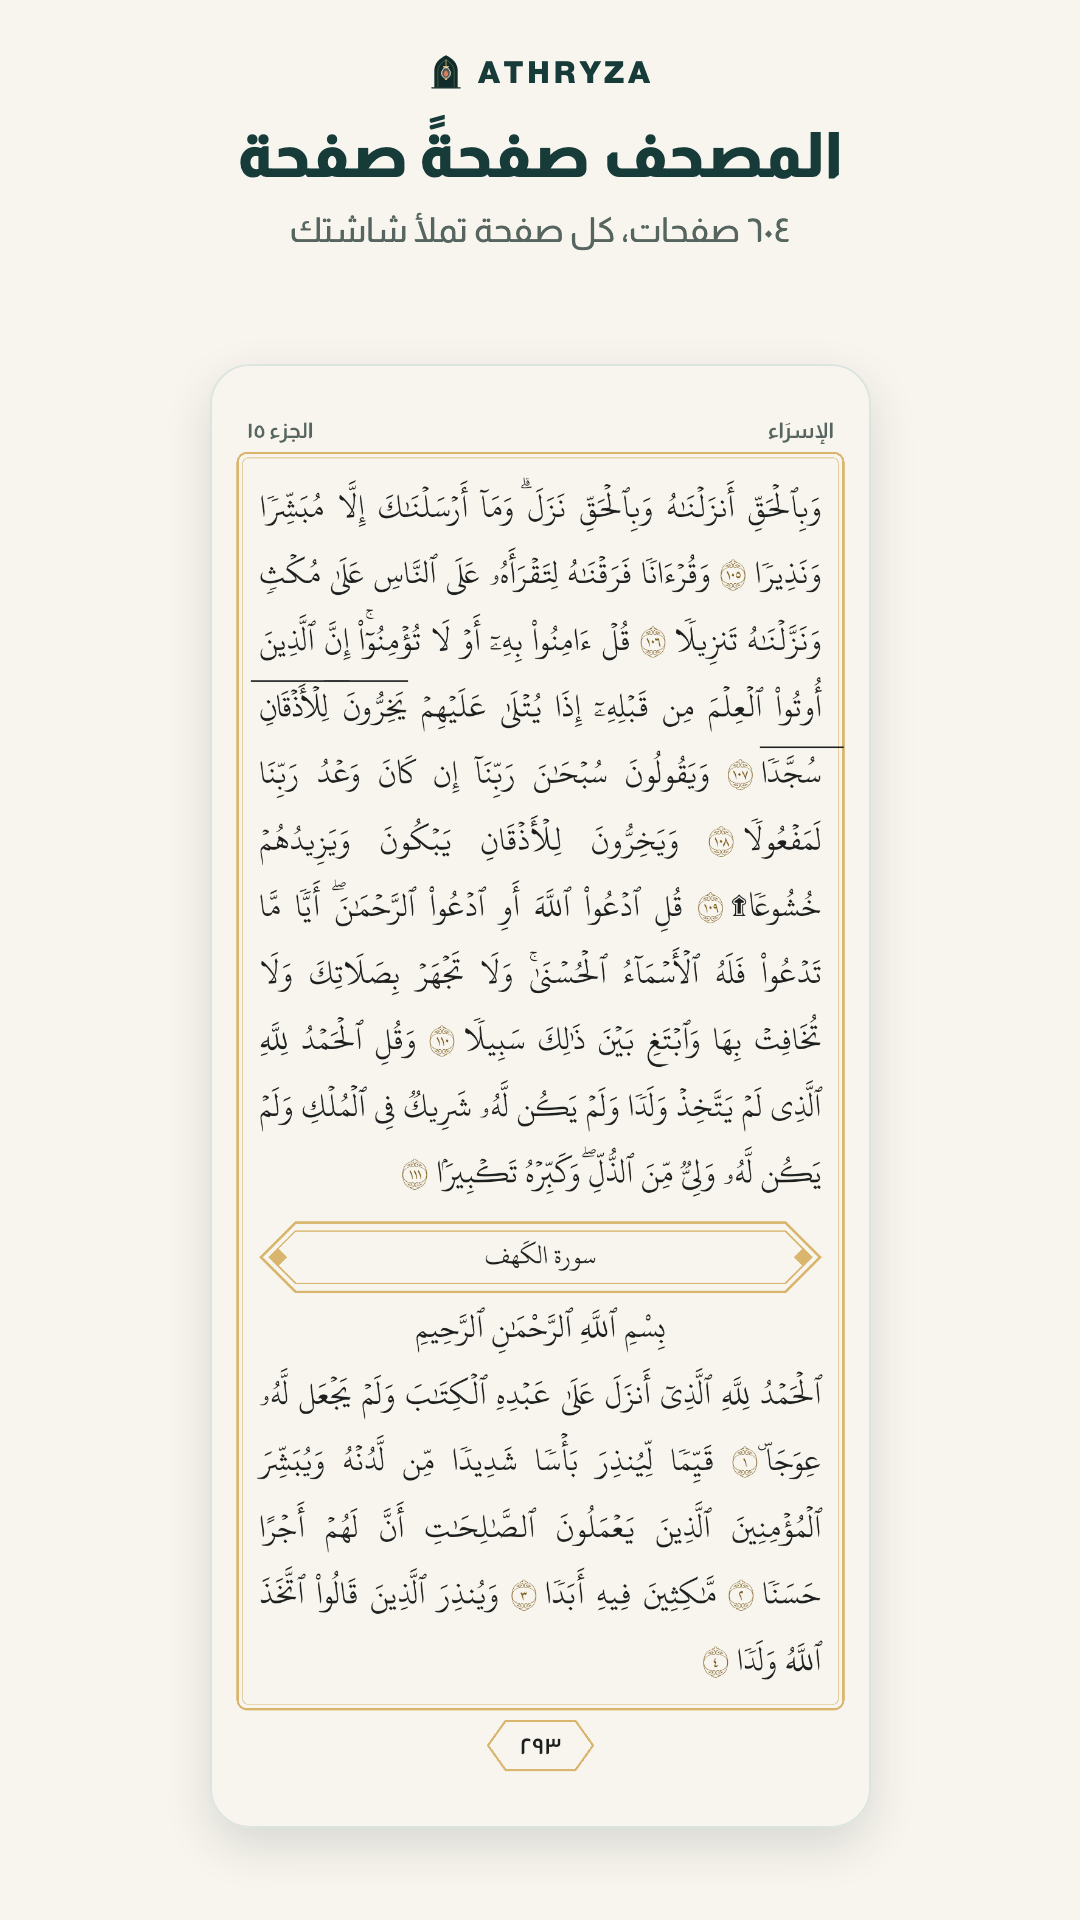 ATHRYZA
المصحف صفحةً صفحة
٦٠٤ صفحات، كل صفحة تملأ شاشتك
الإسرَاء
الجزء ١٥
وَبِٱلۡحَقِّ أَنزَلۡنَٰهُ وَبِٱلۡحَقِّ نَزَلَۗ وَمَآ أَرۡسَلۡنَٰكَ إِلَّا مُبَشِّرٗا
وَنَذِيرٗا ١٠٥ وَقُرۡءَانٗا فَرَقۡنَٰهُ لِتَقۡرَأَهُۥ عَلَى ٱلنَّاسِ عَلَىٰ مُكۡثٖ
وَنَزَّلۡنَٰهُ تَنزِيلٗا ١٠٦ قُلۡ ءَامِنُواْ بِهِۦٓ أَوۡ لَا تُؤۡمِنُوٓاْۚ إِنَّ ٱلَّذِينَ
أُوتُواْ ٱلۡعِلۡمَ مِن قَبۡلِهِۦٓ إِذَا يُتۡلَىٰ عَلَيۡهِمۡ يَخِرُّونَ لِلۡأَذۡقَانِ
سُجَّدٗا ١٠٧ وَيَقُولُونَ سُبۡحَٰنَ رَبِّنَآ إِن كَانَ وَعۡدُ رَبِّنَا
لَمَفۡعُولٗا ١٠٨ وَيَخِرُّونَ لِلۡأَذۡقَانِ يَبۡكُونَ وَيَزِيدُهُمۡ
خُشُوعٗا۩ ١٠٩ قُلِ ٱدۡعُواْ ٱللَّهَ أَوِ ٱدۡعُواْ ٱلرَّحۡمَٰنَۖ أَيّٗا مَّا
تَدۡعُواْ فَلَهُ ٱلۡأَسۡمَآءُ ٱلۡحُسۡنَىٰۚ وَلَا تَجۡهَرۡ بِصَلَاتِكَ وَلَا
تُخَافِتۡ بِهَا وَٱبۡتَغِ بَيۡنَ ذَٰلِكَ سَبِيلٗا ١١٠ وَقُلِ ٱلۡحَمۡدُ لِلَّهِ
ٱلَّذِي لَمۡ يَتَّخِذۡ وَلَدٗا وَلَمۡ يَكُن لَّهُۥ شَرِيكٞ فِي ٱلۡمُلۡكِ وَلَمۡ
يَكُن لَّهُۥ وَلِيّٞ مِّنَ ٱلذُّلِّۖ وَكَبِّرۡهُ تَكۡبِيرَۢا ١١١
سورة الكَهف
بِسْمِ ٱللَّهِ ٱلرَّحْمَٰنِ ٱلرَّحِيمِ
ٱلۡحَمۡدُ لِلَّهِ ٱلَّذِيٓ أَنزَلَ عَلَىٰ عَبۡدِهِ ٱلۡكِتَٰبَ وَلَمۡ يَجۡعَل لَّهُۥ
عِوَجَاۜ ١ قَيِّمٗا لِّيُنذِرَ بَأۡسٗا شَدِيدٗا مِّن لَّدُنۡهُ وَيُبَشِّرَ
ٱلۡمُؤۡمِنِينَ ٱلَّذِينَ يَعۡمَلُونَ ٱلصَّٰلِحَٰتِ أَنَّ لَهُمۡ أَجۡرًا
حَسَنٗا ٢ مَّٰكِثِينَ فِيهِ أَبَدٗا ٣ وَيُنذِرَ ٱلَّذِينَ قَالُواْ ٱتَّخَذَ
ٱللَّهُ وَلَدٗا ٤
٢٩٣